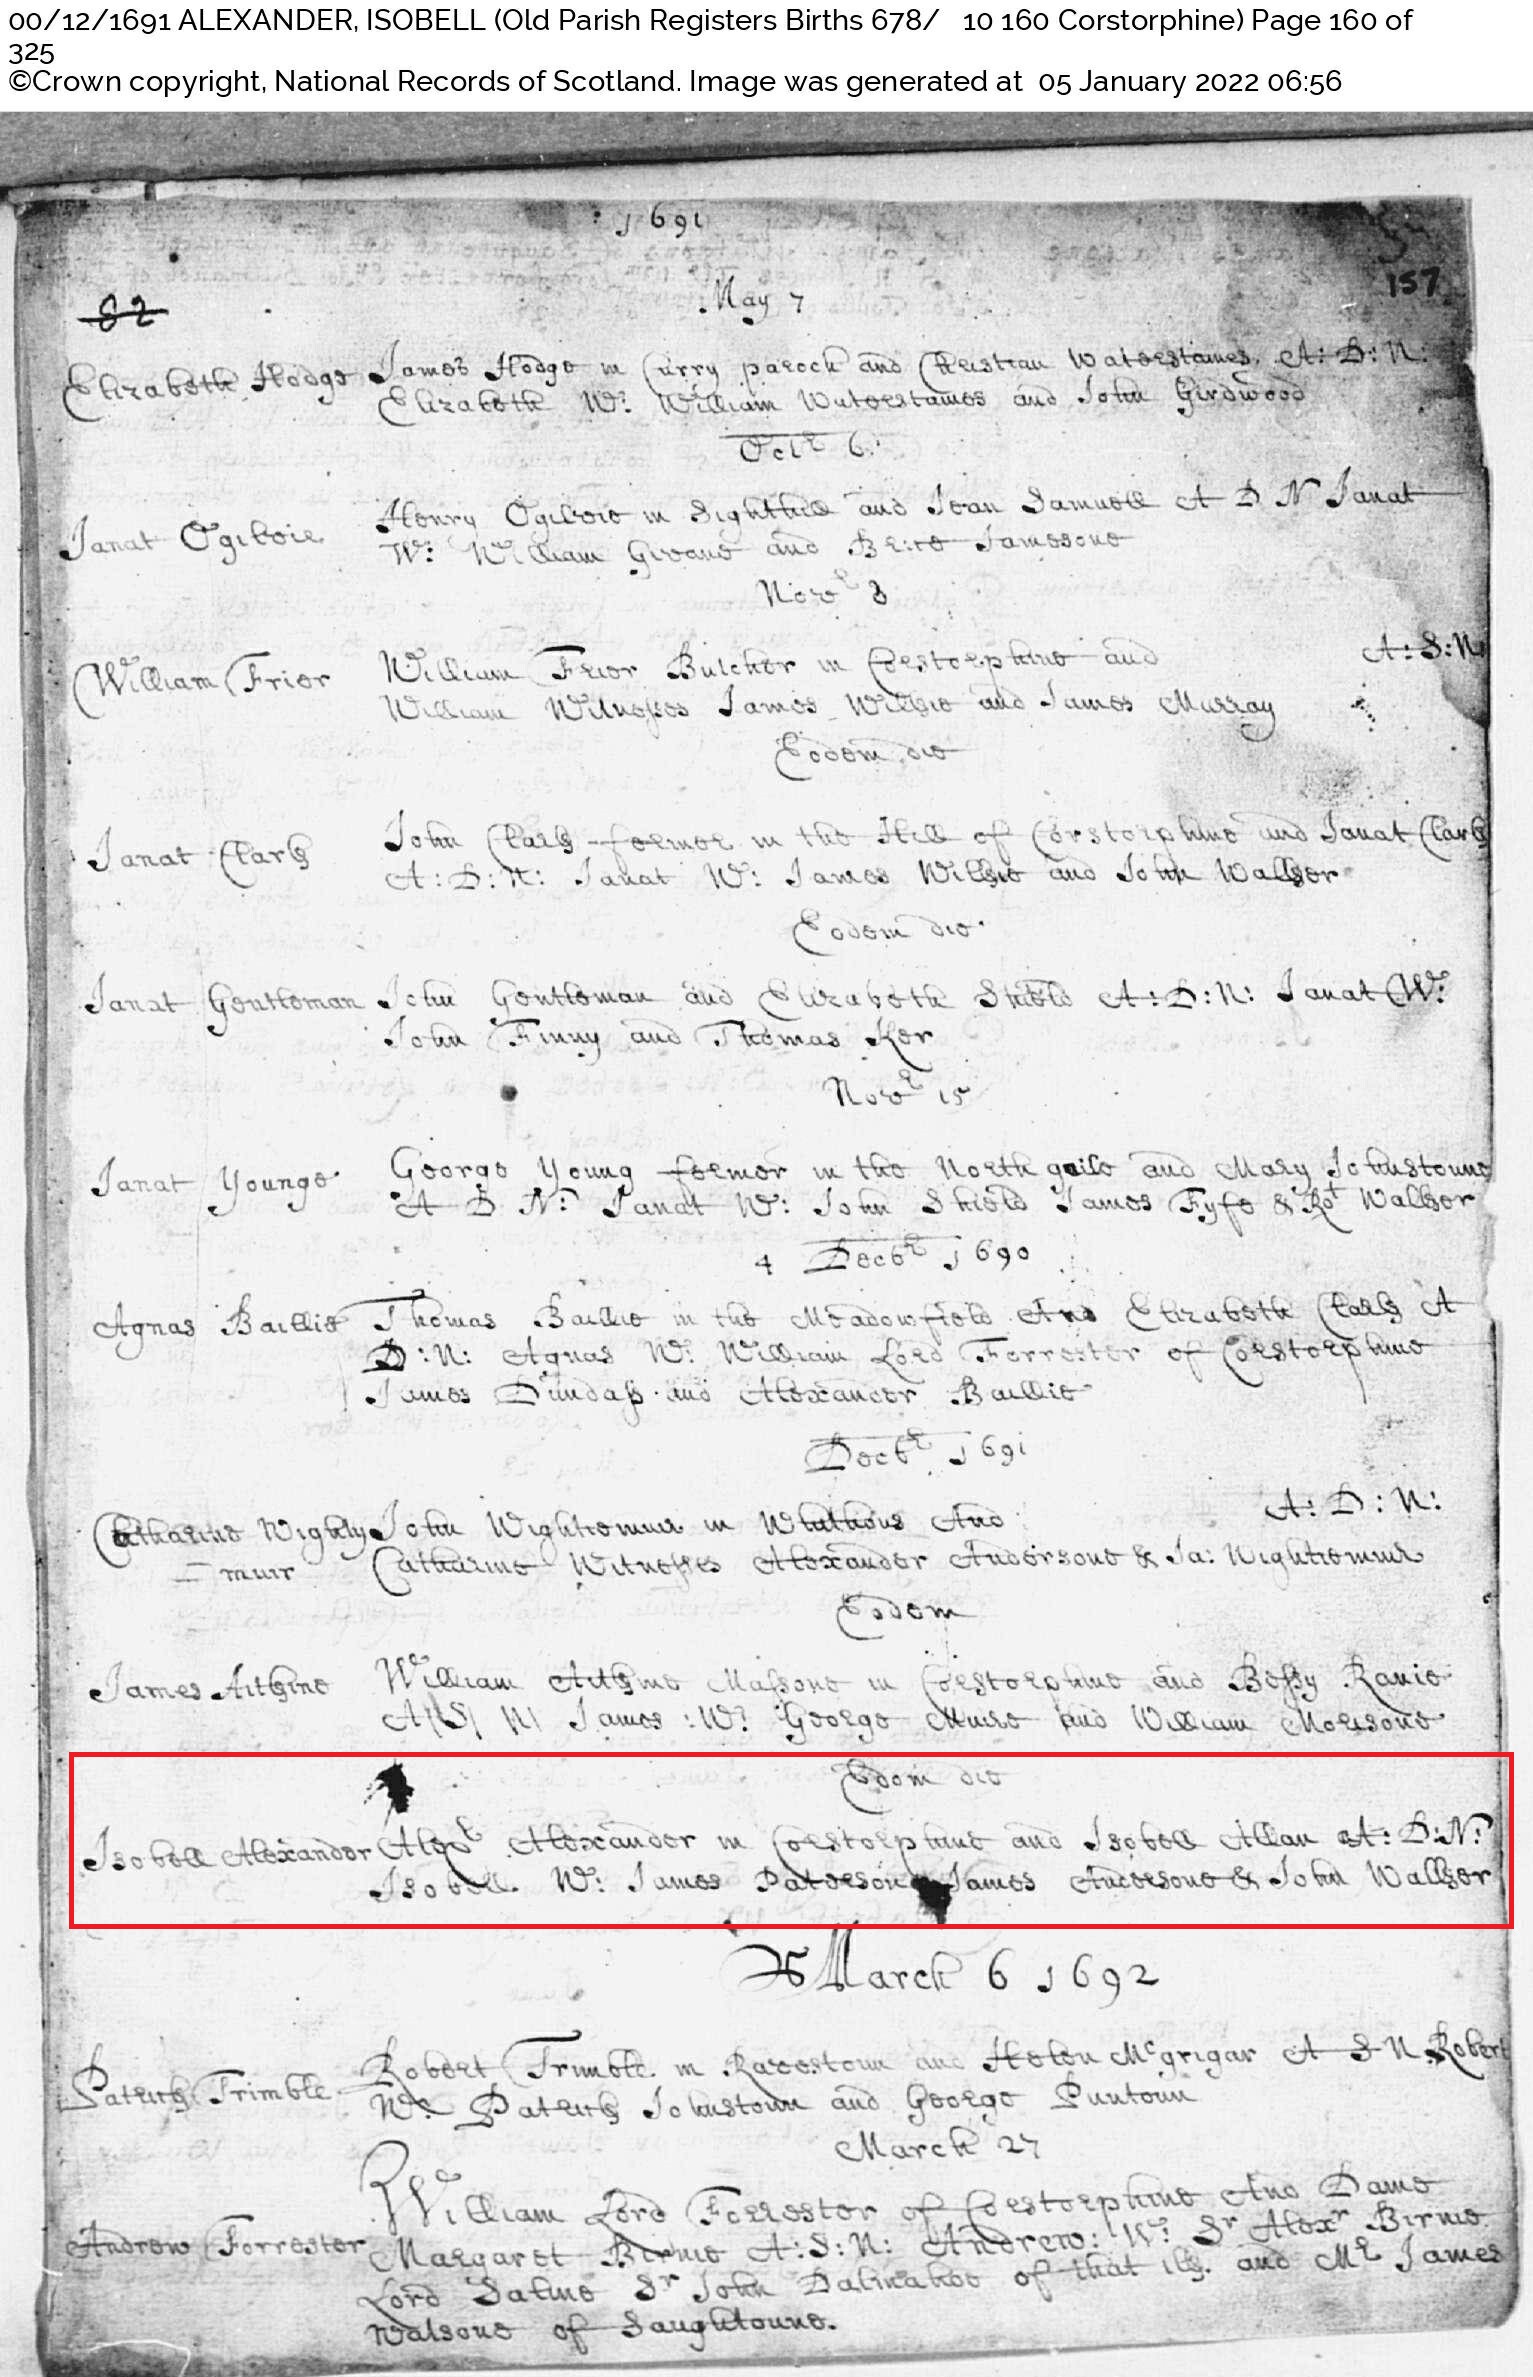 00/12/1691 ALEXANDER, ISOBELL (Old Parish Registers Births 678/ 10 160 Corstorphine) Page 160 of
325
©Crown copyright, National Records of Scotland. Image was generated at 05 January 2022 06:56
: 1691
157
May 7
82
Elizabeth Hodge James Hodge in Curry paroch and Christian Waterstames. A: D: N:
Elizabeth W: William Waterstames and John Girdwood
Octr 6:
Janat Ogilvie Henry Ogilvie in Sighthill and Jean Samuell A D N Janat
W: William Girvane and Jamesone
Novr 8
William Frier William Frier Butcher in Corstorphine and A: S: N:
William Witnesses James Wilkie and James Murray
Eodem die
Janat Clark John Clark fermer in the Hill of Corstorphine and Janat Clark
A: D: N: Janat W: James Wilkie and John Walker
Eodem die
Janat Gentleman John Gentleman and Elizabeth Shield A: D: N: Janat W:
John Finny and Thomas Ker
Novr 15
Janat Younge George Young fermer in the North gaile and Mary Johnstoune
A D N: Janat W: John Shield James Fyfe & Rot Walker
4 Decbr 1690
Agnas Baillie Thomas Baillie in the Meadowfield And Elizabeth Clark A
D: N: Agnas W: William Lord Forrester of Corstorphine
James Dundass and Alexander Baillie
Decbr 1691
Catharine Wighty John Wightiemuir in And A: D: N:
= muir Catharine Witnesses Alexander Andersone & Ja: Wightiemuir
Eodem
James Aitkine William Aitkine Massone in Corstorphine and Bessy Ranie
A S N James: W: George Muire and William Morisone
Edom die
Isobell Alexander Alexr Alexander in Corstorphine and Isobell Allan A: D: N:
Isobell. W: James Patersone James Andersone & John Walker
March 6 1692
Patrick Trimble Robert Trimble in Ravestoun and Helen Mcgrigar A S N Robert
W: Patrick Johnstoun and George Puntoun
March 27
William Lord Forrester of Corstorphine And Dame
Andrew Forrester Margaret Birnie A: S: N: Andrew: W: Sr Alexr Birnie
Lord Saline Sr John Dalmahoe of that ilk. and Mr James
Watsone of Saughtoune.